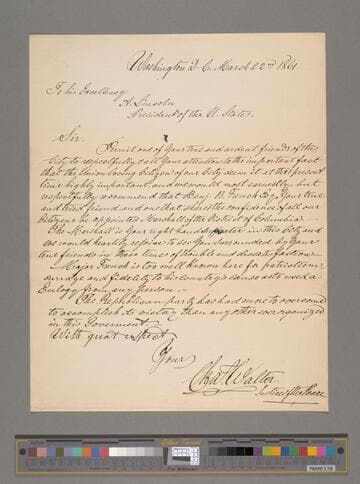 Washington D. C. March 22nd 1861
To his Excellency
A. Lincoln
President of the U. States.
Sir.
Permit one of your true and ardent friends of the
City to respectfully call your attention to the important fact
that the Union loving Citizens of our City deem it at this present
time highly important and we would most earnestly but
respectfully recommend that Benj. B. French Esq. Your true
and tried friend and one that shares the confidence of all our
Citizens be appointed Marshall of the District of Columbia
The Marshall is Your right hand in this City and
we would heartily rejoice to see You Surrounded by Your
true friends in these times of trouble and dissatisfaction.
Major French is too well known here for patriotism
and fidelity to his Country's cause as to need a
Eulogy from any person. -
The Republican party has had more to overcome
to accomplish its victory than any other ever organized
in this Goverment
With great respect
Your
Chas. Walter.
Justice of the Peace
M000338